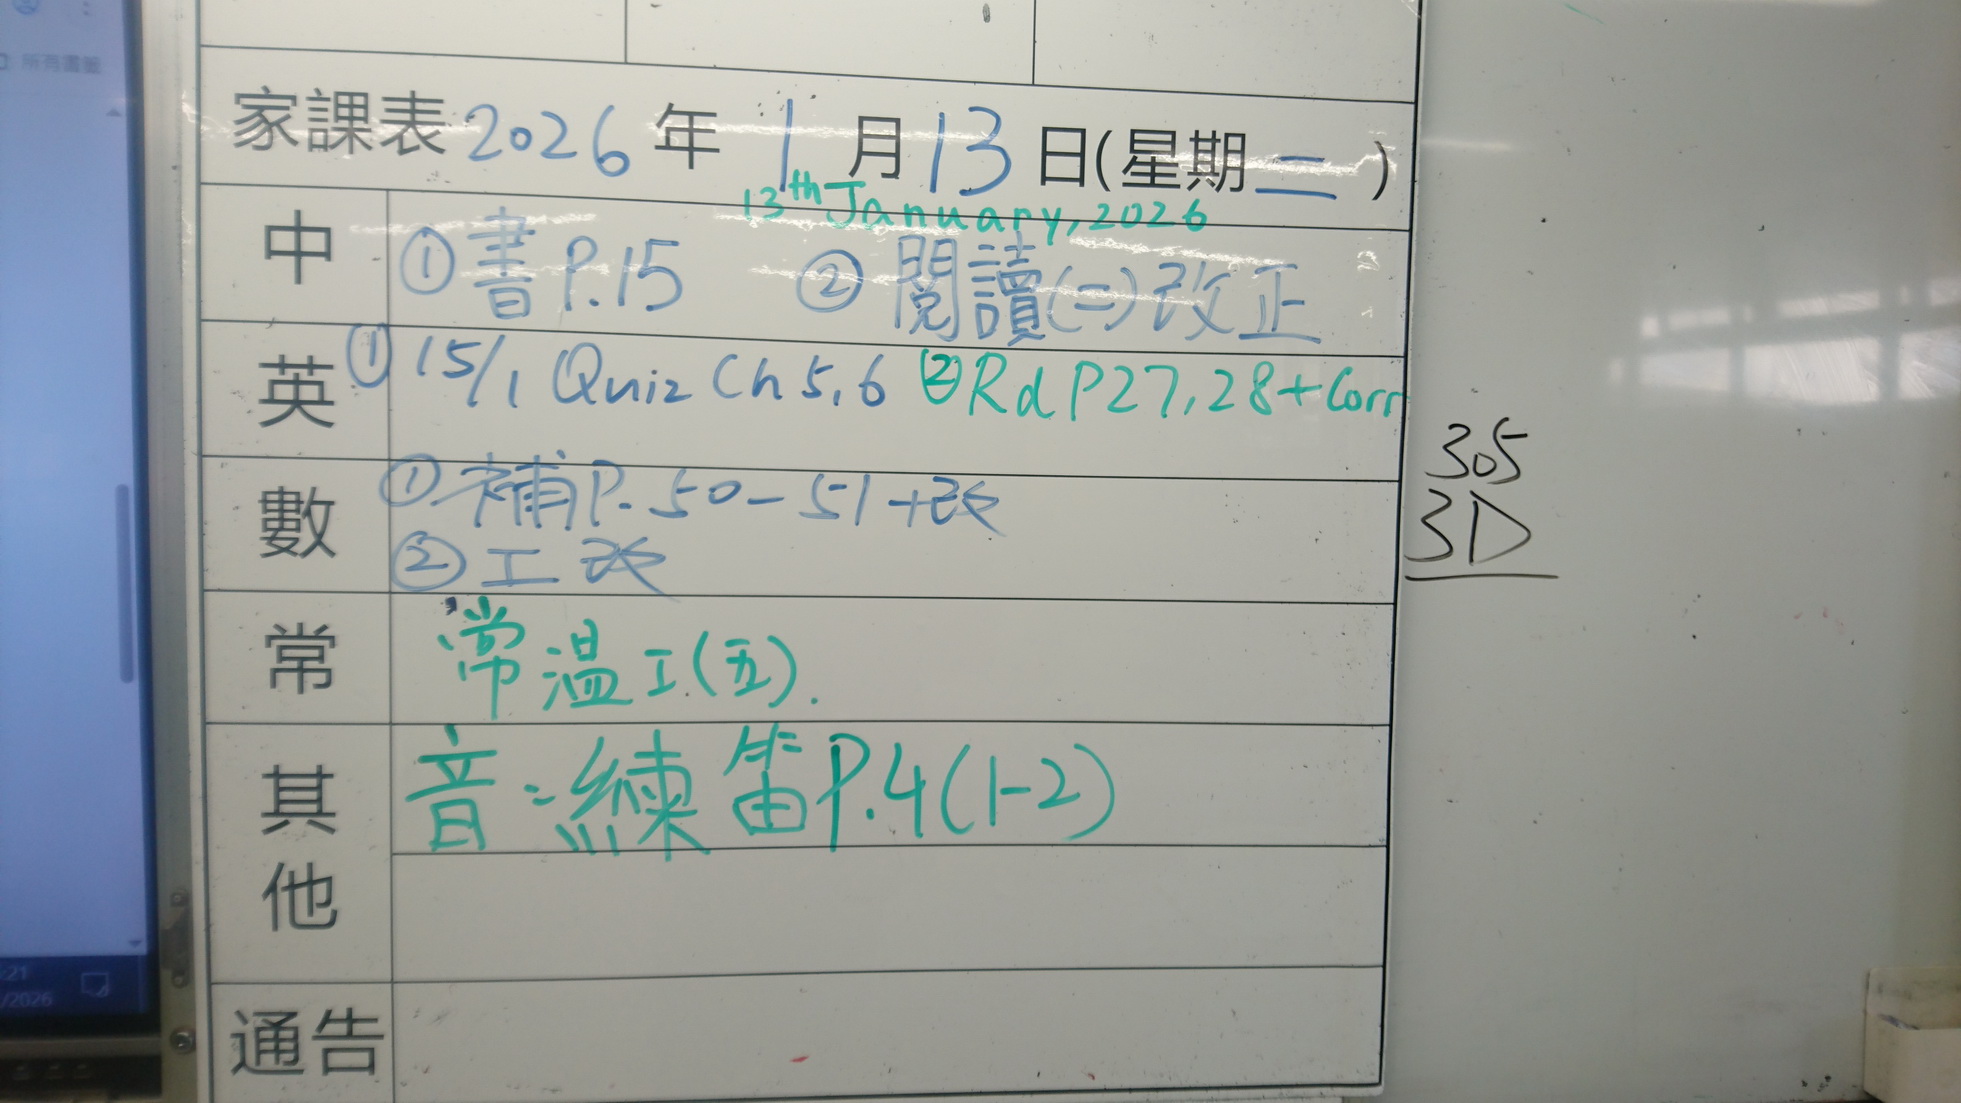 所有書籤
家課表 2026 年 1 月 13 日(星期二)
13th January, 2026
中 ①書P.15 ②閱讀(二)改正
英 ①15/1 Quiz Ch 5,6 ②Rd P27,28+Corr
數 ①補P.50-51+改
②工改
常 常溫工(五).
其他 音：練笛P.4(1-2)
通告
305
3D
:21
/2026